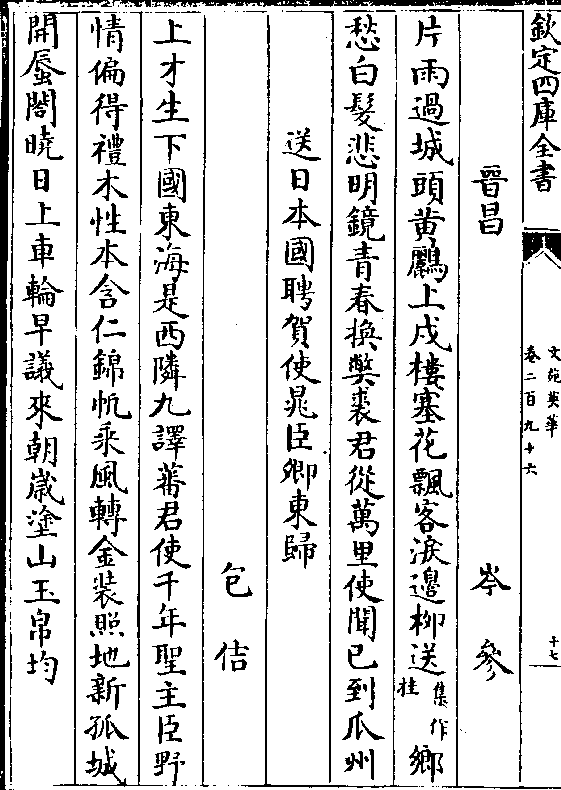 欽定四庫全書
文苑英華
卷二百九十六
十七
晉昌 岑參
片雨過城頭黃鸝上戍樓塞花飄客淚邊柳送集作挂鄉
愁白髮悲明鏡青春換弊裘君從萬里使聞已到瓜州
送日本國聘賀使晁臣卿東歸
包佶
上才生下國東海是西隣九譯蕃君使千年聖主臣野
情偏得禮木性本含仁錦帆乘風轉金裝照地新孤城
開蜃閣曉日上車輪早議來朝歲塗山玉帛均